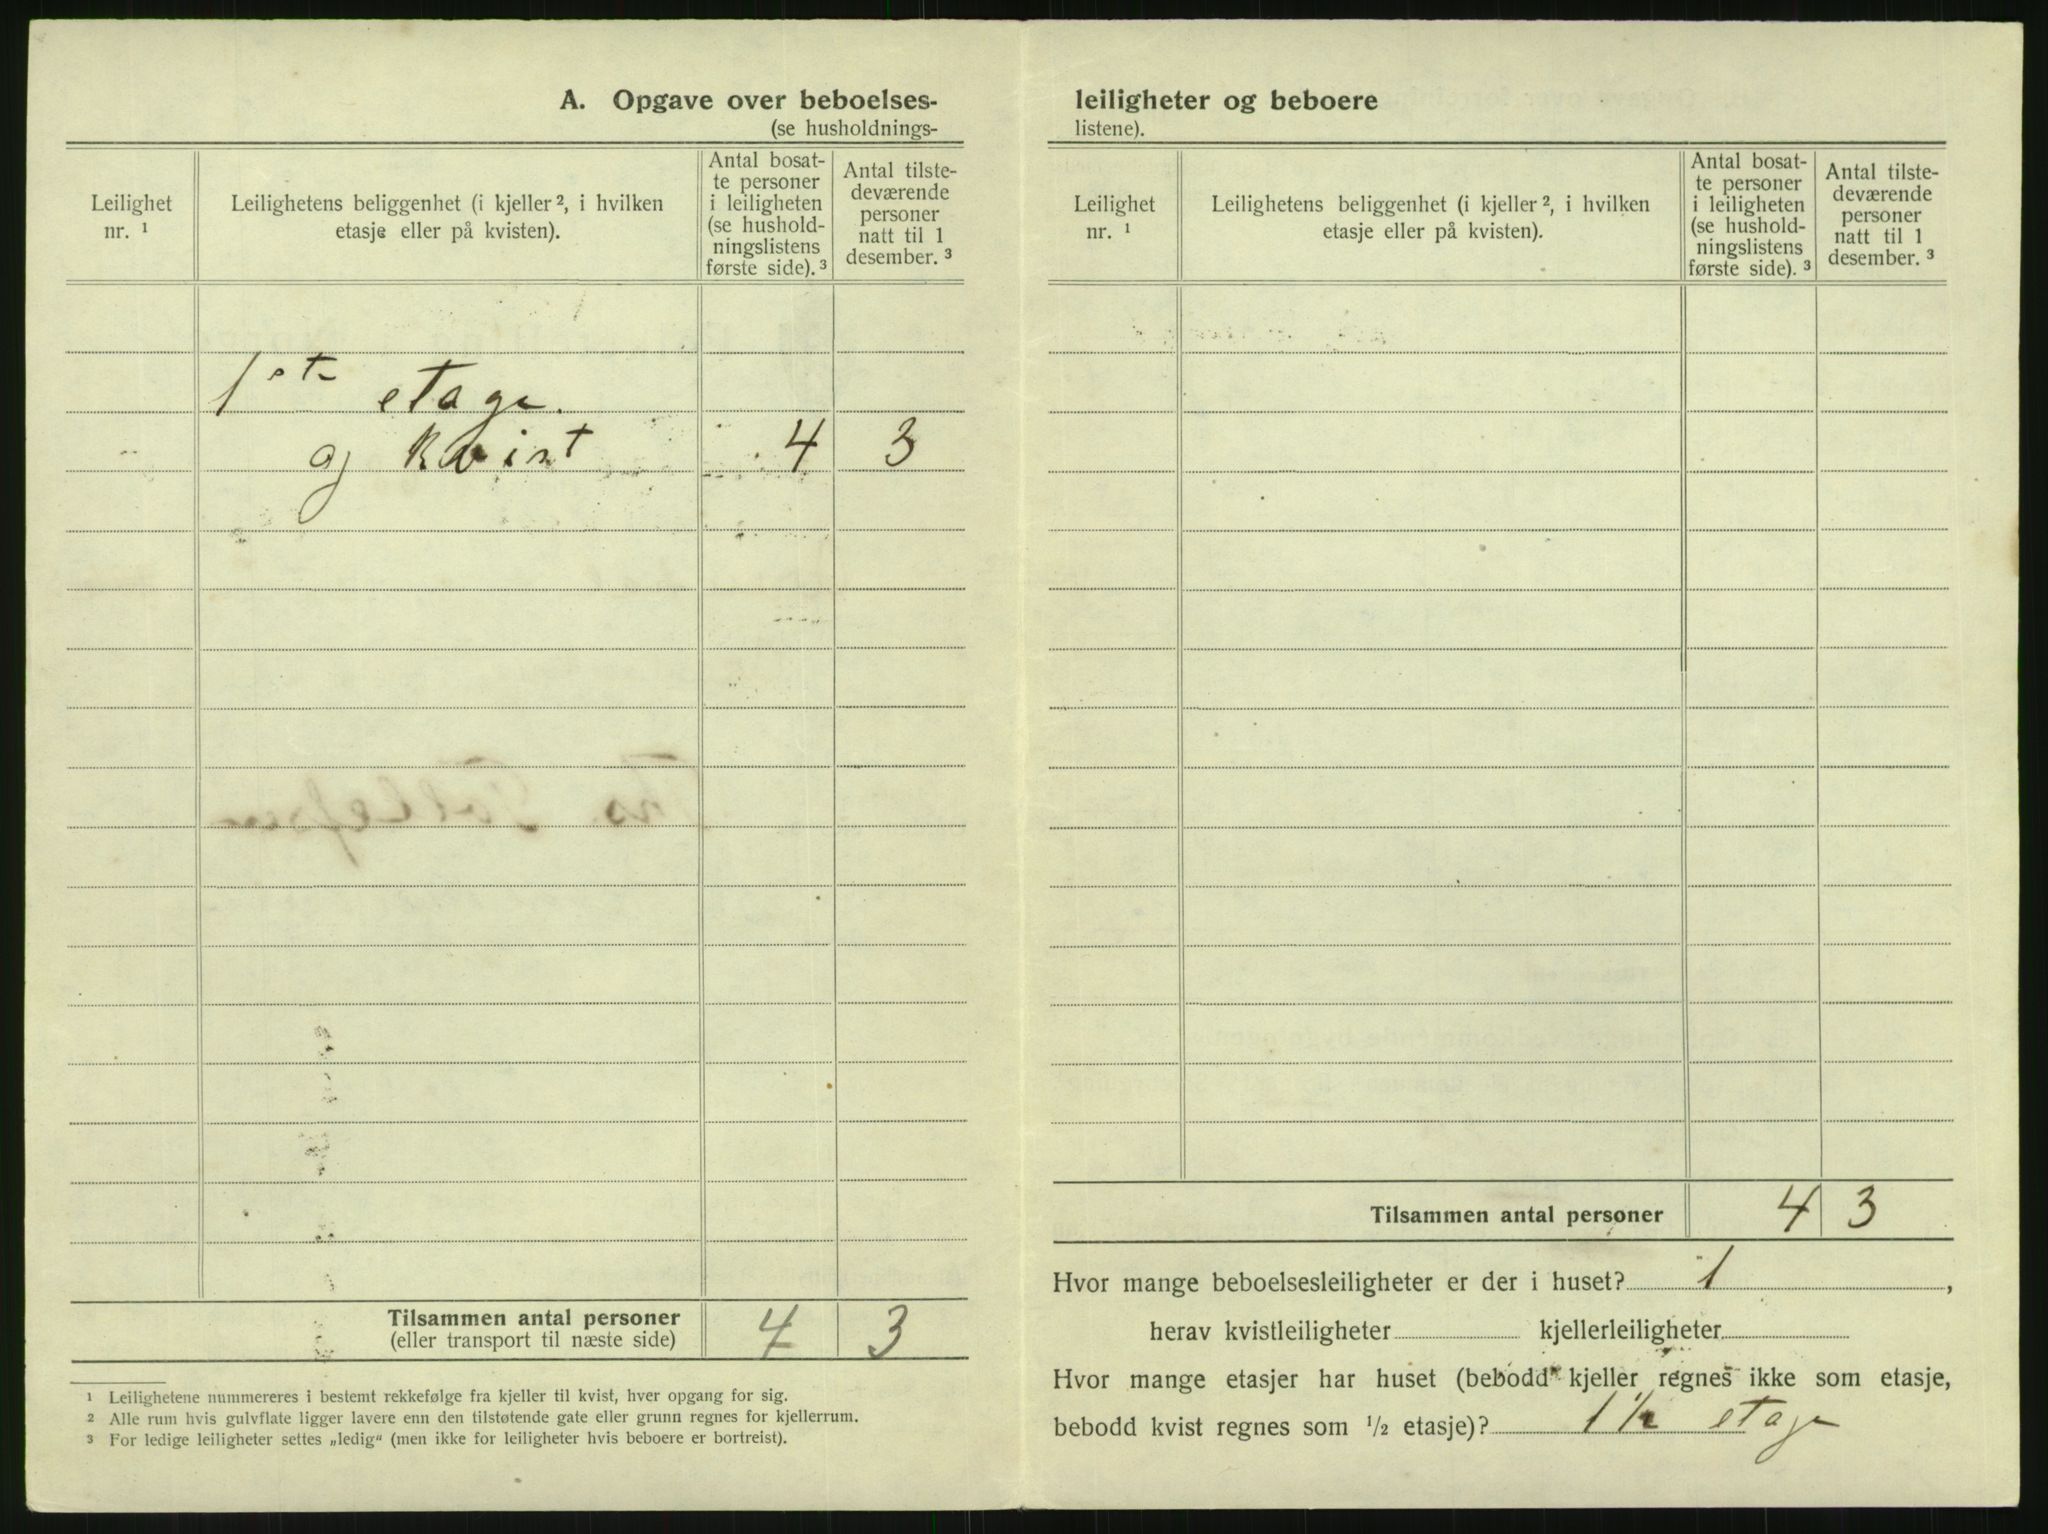 A. Opgave over beboelses-
(se husholdnings-
Leilighet
nr. 1
Leilighetens beliggenhet (i kjeller 2, i hvilken
etasje eller på kvisten).
Antal bosat-
te personer
i leiligheten
(se hushold-
ningslistens
første side). 3
Antal tilste-
deværende
personer
natt til 1
desember. 3
1ste etage.
og kvist 4 3
Tilsammen antal personer 4 3
(eller transport til næste side)
1 Leilighetene nummereres i bestemt rekkefølge fra kjeller til kvist, hver opgang for sig.
2 Alle rum hvis gulvflate ligger lavere enn den tilstøtende gate eller grunn regnes for kjellerrum.
3 For ledige leiligheter settes „ledig“ (men ikke for leiligheter hvis beboere er bortreist).
leiligheter og beboere
listene).
Leilighet
nr. 1
Leilighetens beliggenhet (i kjeller 2, i hvilken
etasje eller på kvisten).
Antal bosat-
te personer
i leiligheten
(se hushold-
ningslistens
første side). 3
Antal tilste-
deværende
personer
natt til 1
desember. 3
Tilsammen antal personer 4 3
Hvor mange beboelsesleiligheter er der i huset? 1 ,
herav kvistleiligheter kjellerleiligheter
Hvor mange etasjer har huset (bebodd kjeller regnes ikke som etasje,
bebodd kvist regnes som 1/2 etasje)? 1 1/2 etage